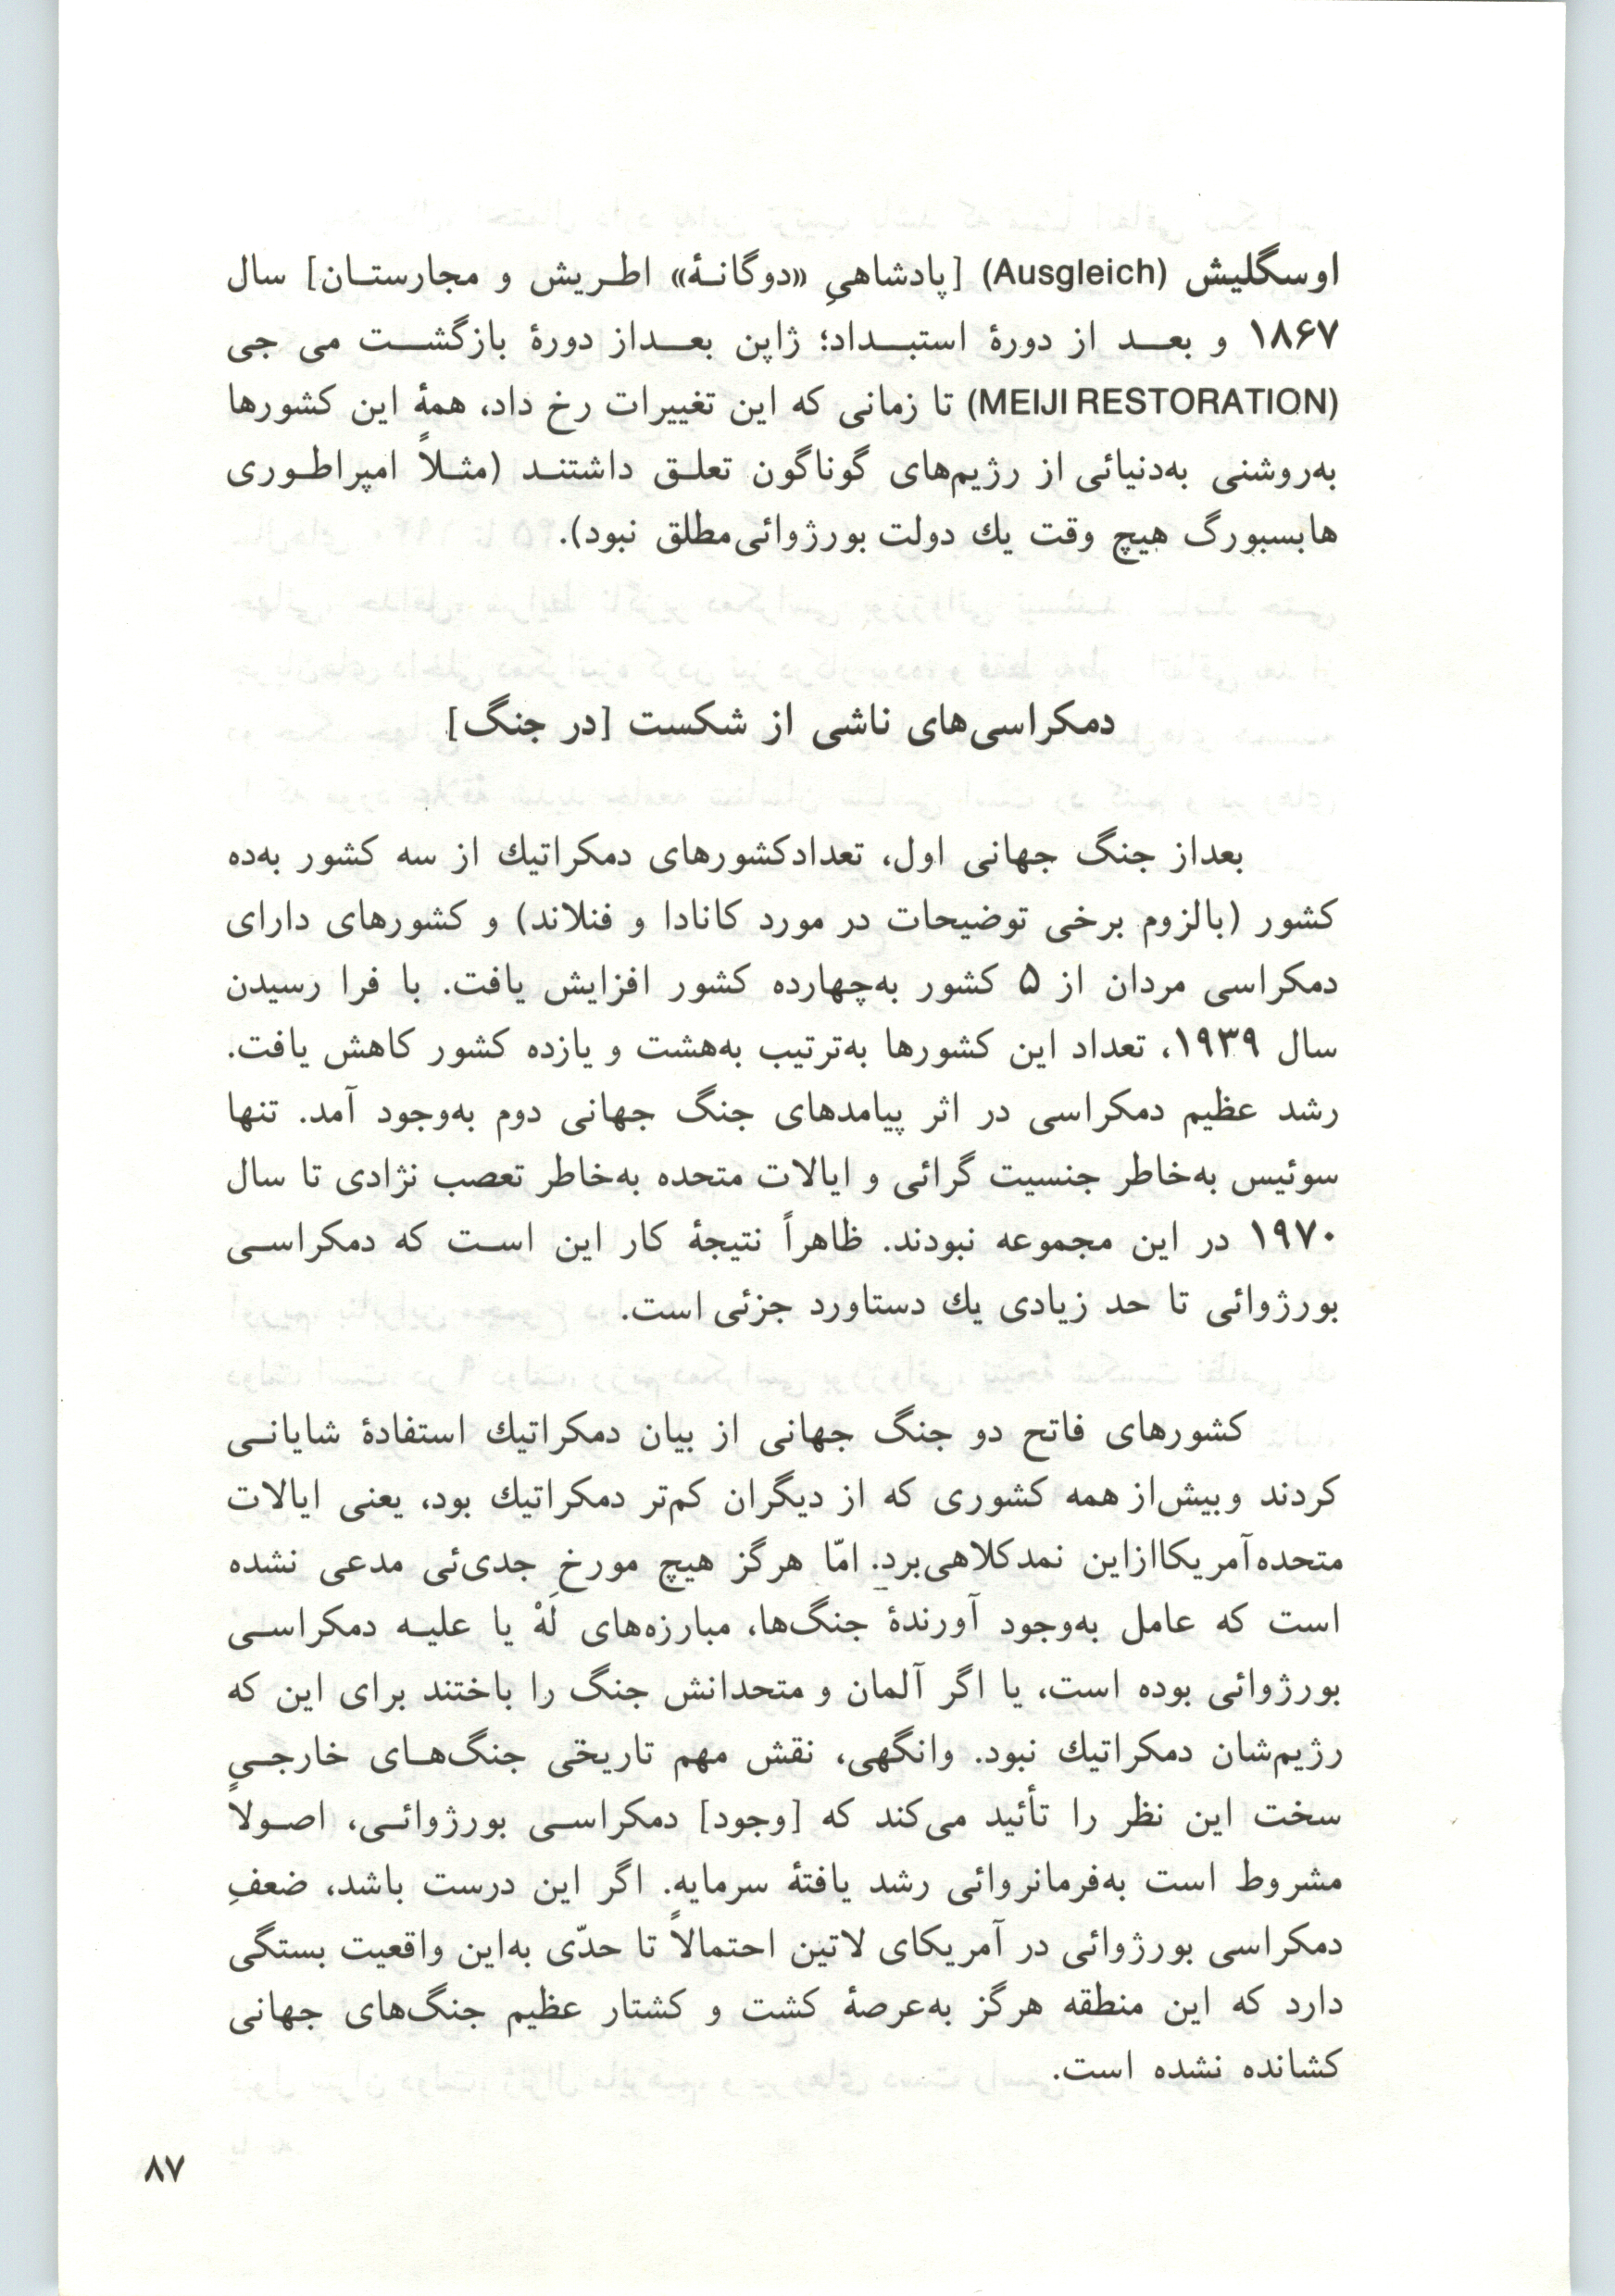 اوسگلیش (Ausgleich) [پادشاهیِ «دوگانـهٔ» اطـریش و مجارستـان] سال
۱۸۶۷ و بعـد از دورهٔ استبـداد؛ ژاپن بعـداز دورهٔ بازگشـت می جی
(MEIJI RESTORATION) تا زمانی که این تغییرات رخ داد، همهٔ این کشورها
به‌روشنی به‌دنیائی از رژیم‌های گوناگون تعلـق داشتنـد (مثـلاً امپراطـوری
هابسبورگ هیچ وقت یك دولت بورژوائی‌مطلق نبود).
دمکراسی‌های ناشی از شکست [در جنگ]
بعداز جنگ جهانی اول، تعدادکشورهای دمکراتیك از سه کشور به‌ده
کشور (بالزوم برخی توضیحات در مورد کانادا و فنلاند) و کشورهای دارای
دمکراسی مردان از ۵ کشور به‌چهارده کشور افزایش یافت. با فرا رسیدن
سال ۱۹۳۹، تعداد این کشورها به‌ترتیب به‌هشت و یازده کشور کاهش یافت.
رشد عظیم دمکراسی در اثر پیامدهای جنگ جهانی دوم به‌وجود آمد. تنها
سوئیس به‌خاطر جنسیت گرائی و ایالات متحده به‌خاطر تعصب نژادی تا سال
۱۹۷۰ در این مجموعه نبودند. ظاهراً نتیجهٔ کار این اسـت که دمکراسـی
بورژوائی تا حد زیادی یك دستاورد جزئی است.
کشورهای فاتح دو جنگ جهانی از بیان دمکراتیك استفادهٔ شایانـی
کردند وبیش‌از همه کشوری که از دیگران کم‌تر دمکراتیك بود، یعنی ایالات
متحده‌آمریکاازاین نمدکلاهی‌برد. امّا هرگز هیچ مورخ جدی‌ئی مدعی نشده
است که عامل به‌وجود آورندهٔ جنگ‌ها، مبارزه‌های لَهْ یا علیـه دمکراسـی
بورژوائی بوده است، یا اگر آلمان و متحدانش جنگ را باختند برای این که
رژیم‌شان دمکراتیك نبود. وانگهی، نقش مهم تاریخی جنگ‌هـای خارجـیِ
سخت این نظر را تأئید می‌کند که [وجود] دمکراسـی بورژوائـی، اصـولاً
مشروط است به‌فرمانروائی رشد یافتهٔ سرمایه. اگر این درست باشد، ضعفِ
دمکراسی بورژوائی در آمریکای لاتین احتمالاً تا حدّی به‌این واقعیت بستگی
دارد که این منطقه هرگز به‌عرصهٔ کشت و کشتار عظیم جنگ‌های جهانی
کشانده نشده است.
۸۷